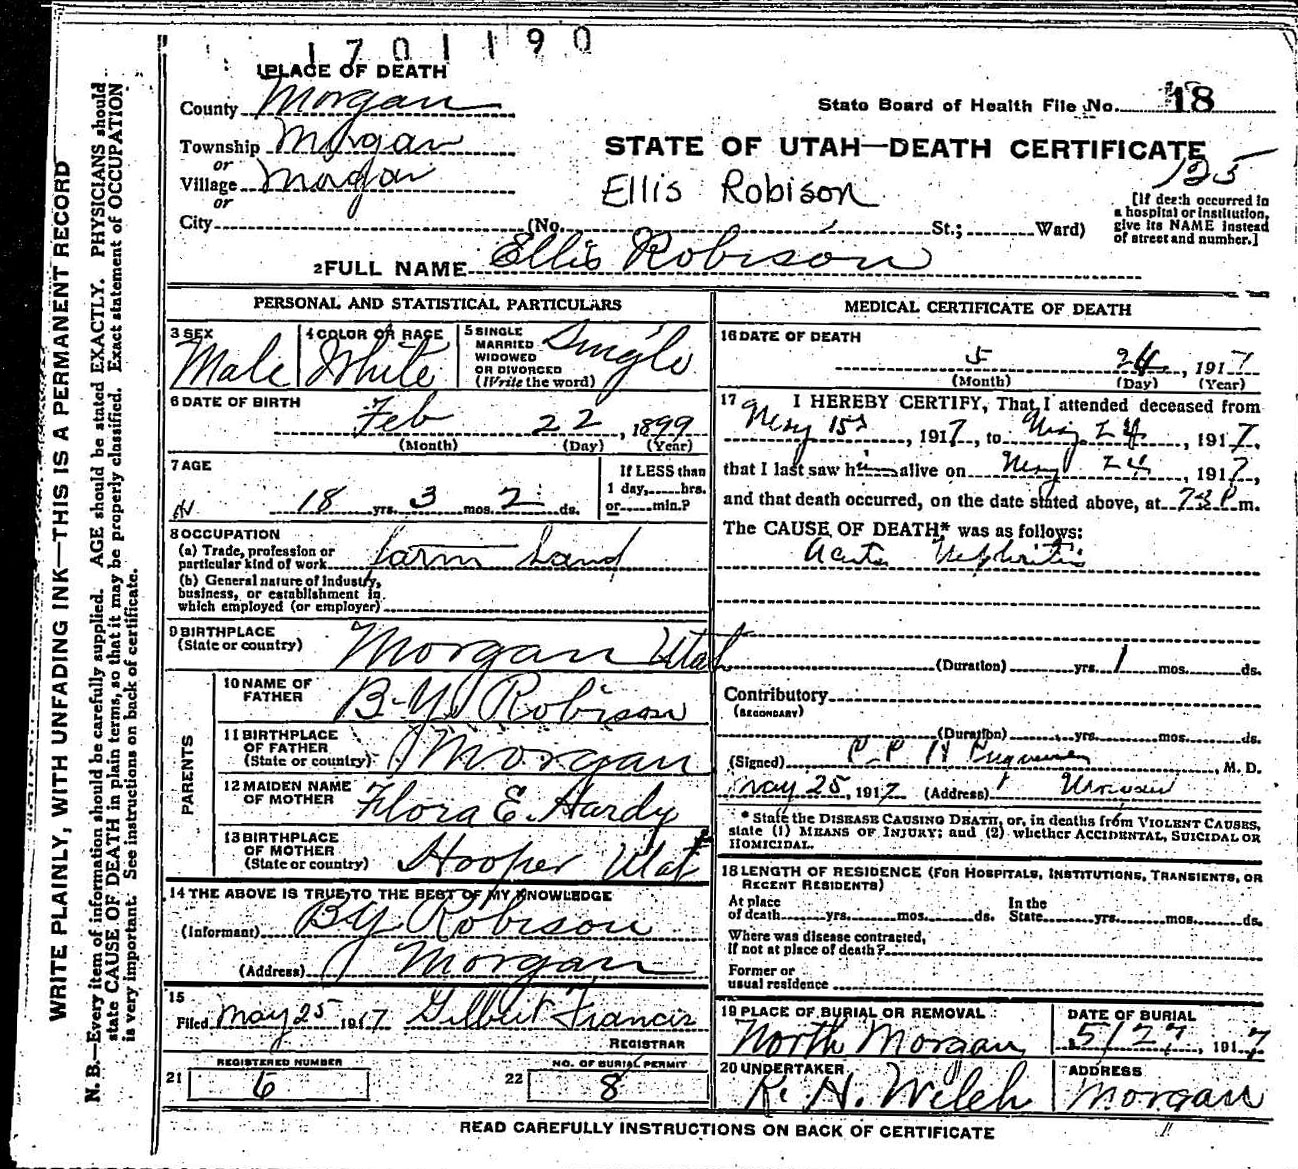 1701190
1 PLACE OF DEATH
County Morgan
State Board of Health File No. 18
Township Morgan
or
Village Morgan
or
City (No. St.; Ward)
STATE OF UTAH—DEATH CERTIFICATE
125
Ellis Robison
[If death occurred in a hospital or institution, give its NAME instead of street and number.]
2 FULL NAME Ellis Robison
PERSONAL AND STATISTICAL PARTICULARS
3 SEX
Male
4 COLOR OR RACE
White
5 SINGLE
MARRIED
WIDOWED
OR DIVORCED
(Write the word)
Single
6 DATE OF BIRTH
Feb 22, 1899
(Month) (Day) (Year)
7 AGE
18 yrs. 3 mos. 2 ds.
If LESS than
1 day, hrs.
or min.?
8 OCCUPATION
(a) Trade, profession or
particular kind of work farm hand
(b) General nature of Industry,
business, or establishment in
which employed (or employer)
9 BIRTHPLACE
(State or country) Morgan Utah
PARENTS
10 NAME OF
FATHER B.Y. Robison
11 BIRTHPLACE
OF FATHER
(State or country) Morgan
12 MAIDEN NAME
OF MOTHER Flora E. Hardy
13 BIRTHPLACE
OF MOTHER
(State or country) Hooper Utah
14 THE ABOVE IS TRUE TO THE BEST OF MY KNOWLEDGE
(Informant) B Y Robison
(Address) Morgan
15
Filed May 25 1917 Gilbert Francis
REGISTRAR
REGISTERED NUMBER
21 6
NO. OF BURIAL PERMIT
22 8
MEDICAL CERTIFICATE OF DEATH
16 DATE OF DEATH
5 24, 1917
(Month) (Day) (Year)
17 I HEREBY CERTIFY, That I attended deceased from
May 15, 1917, to May 24, 1917,
that I last saw him alive on May 24, 1917,
and that death occurred, on the date stated above, at P m.
The CAUSE OF DEATH* was as follows:
Acute Nephritis
(Duration) yrs. 1 mos. ds.
Contributory
(SECONDARY)
(Duration) yrs. mos. ds.
(Signed) M. D.
May 25, 1917 (Address)
* State the DISEASE CAUSING DEATH, or, in deaths from VIOLENT CAUSES,
state (1) MEANS OF INJURY; and (2) whether ACCIDENTAL, SUICIDAL OR
HOMICIDAL.
18 LENGTH OF RESIDENCE (FOR HOSPITALS, INSTITUTIONS, TRANSIENTS, OR
RECENT RESIDENTS)
At place
of death yrs. mos. ds.
In the
State yrs. mos. ds.
Where was disease contracted,
if not at place of death?
Former or
usual residence
19 PLACE OF BURIAL OR REMOVAL
North Morgan
DATE OF BURIAL
5/27, 1917
20 UNDERTAKER
R. H. Welch
ADDRESS
Morgan
READ CAREFULLY INSTRUCTIONS ON BACK OF CERTIFICATE
WRITE PLAINLY, WITH UNFADING INK—THIS IS A PERMANENT RECORD
N. B.—Every item of information should be carefully supplied. AGE should be stated EXACTLY. PHYSICIANS should
state CAUSE OF DEATH in plain terms, so that it may be properly classified. Exact statement of OCCUPATION
is very important. See instructions on back of certificate.